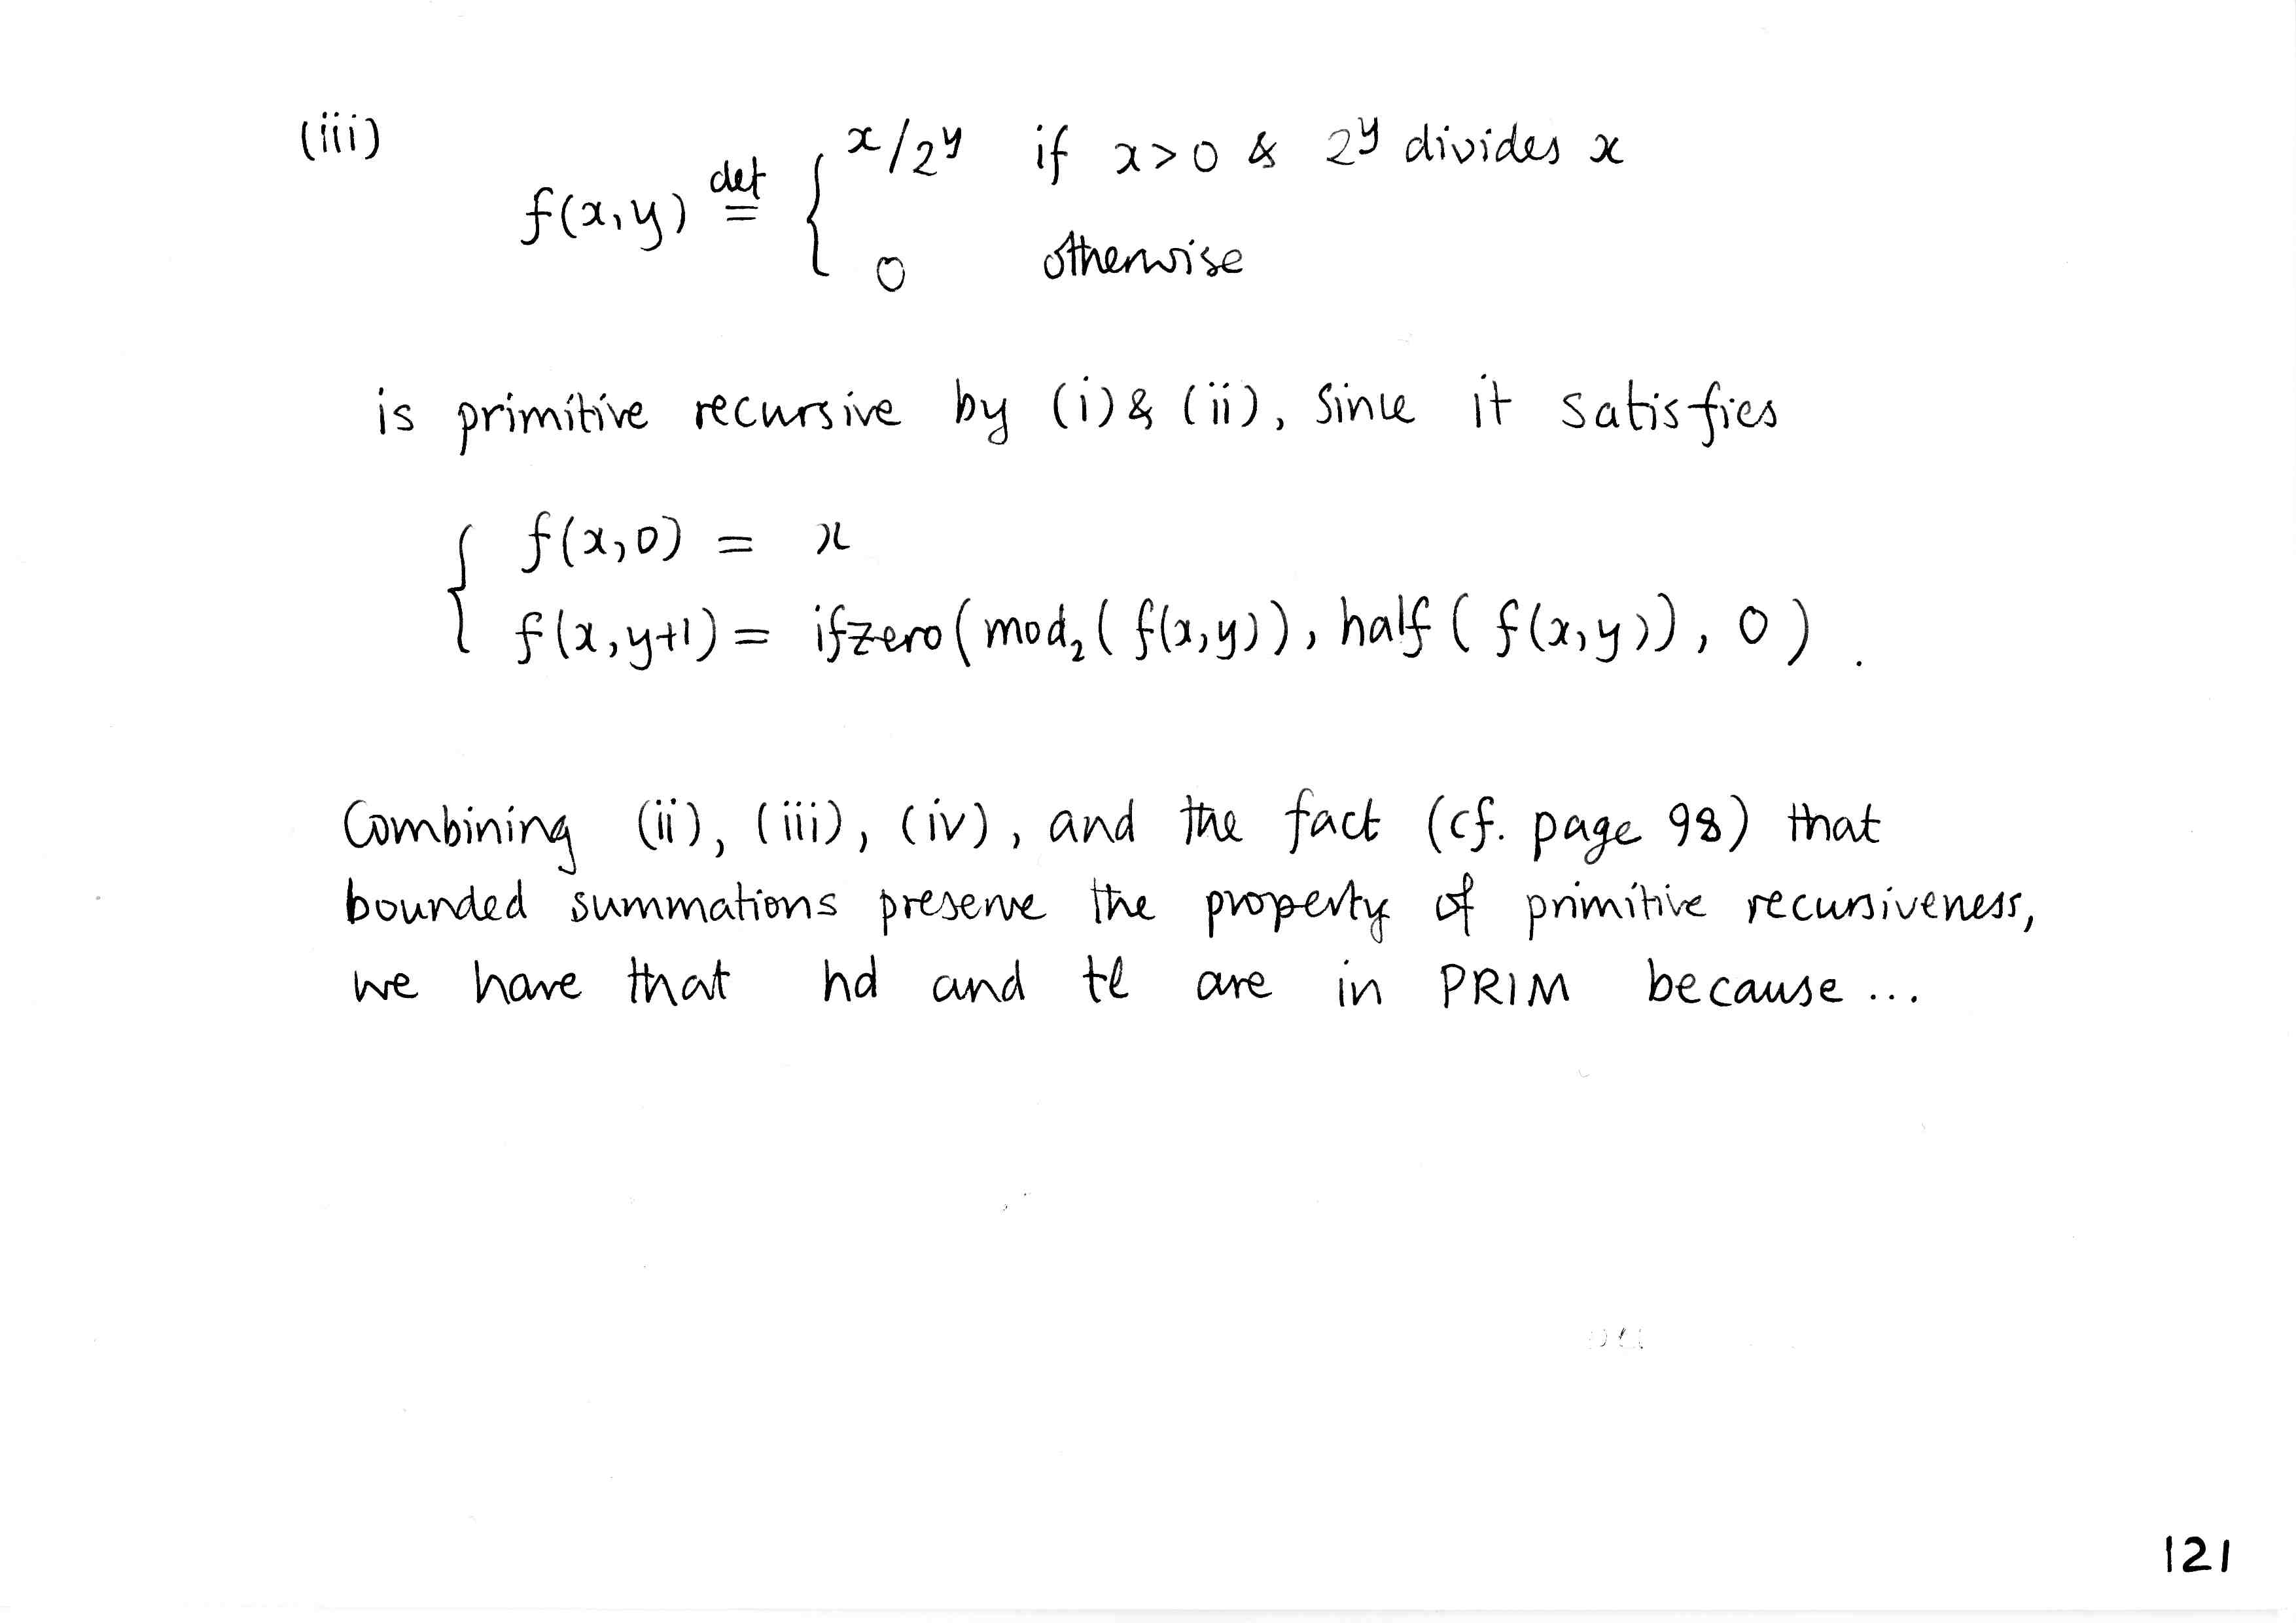 (iii)
f(x,y) def= { x/2^y if x>0 & 2^y divides x
0 otherwise
is primitive recursive by (i) & (ii), since it satisfies
{ f(x,0) = x
f(x,y+1) = ifzero(mod₂(f(x,y)), half(f(x,y)), 0).
Combining (ii), (iii), (iv), and the fact (cf. page 98) that
bounded summations preserve the property of primitive recursiveness,
we have that hd and tl are in PRIM because...
121